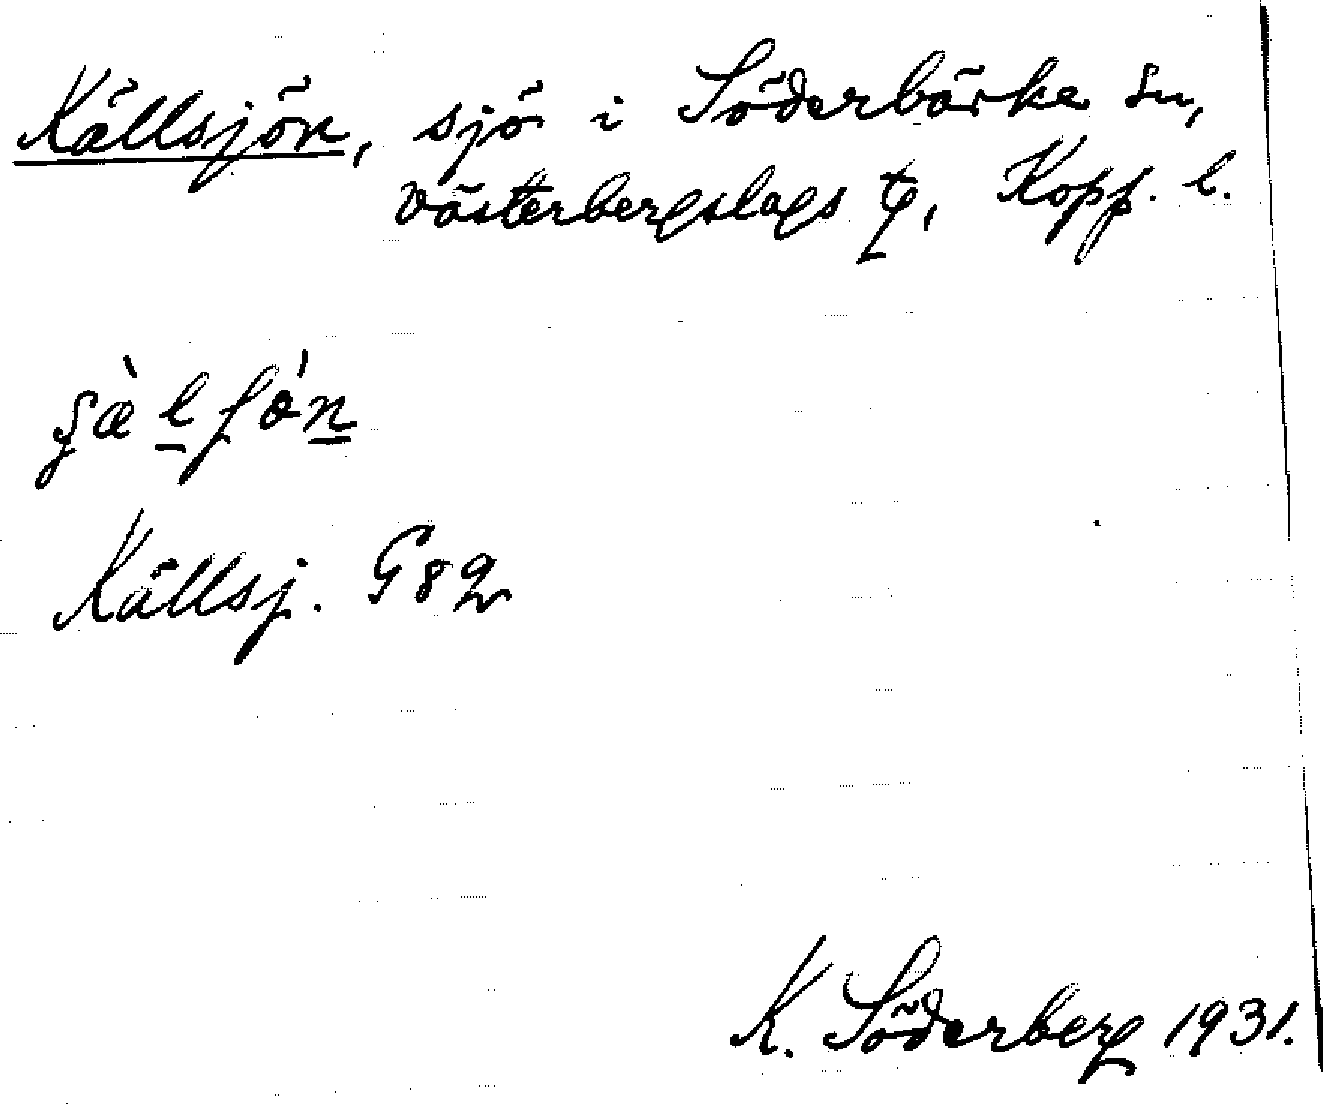 Källsjön, sjö i Söderbärke sn,
Västerbergslags tg, Kopp. l.
Källsj. G82
K. Söderberg 1931.